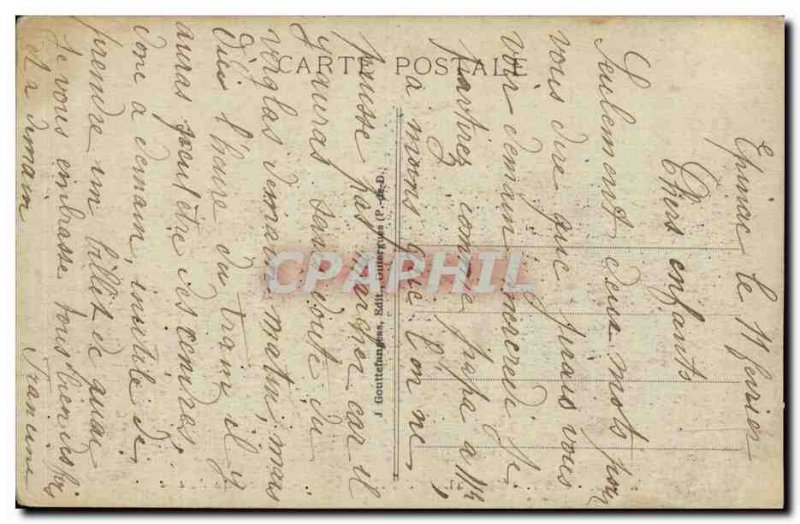 CARTE POSTALE
J. Gouttefangeas, Edit., Olliergues (P.-de-D.)
CPAPHIL
Epinac le 11 février
Chers enfants
Seulement deux mots pour
vous dire que j'irais vous
voir demain mercredi. Je
partirez comme papa à 11h
à moins que l'on ne
puisse pas marcher car il
y auras sans doute du
verglas demain matin, mais
d'ici l'heure du train il y
auras peut être des cendres,
donc à demain, inutile de
prendre un billet de quai
Je vous embrasse tous bien des fois
et à demain Francine